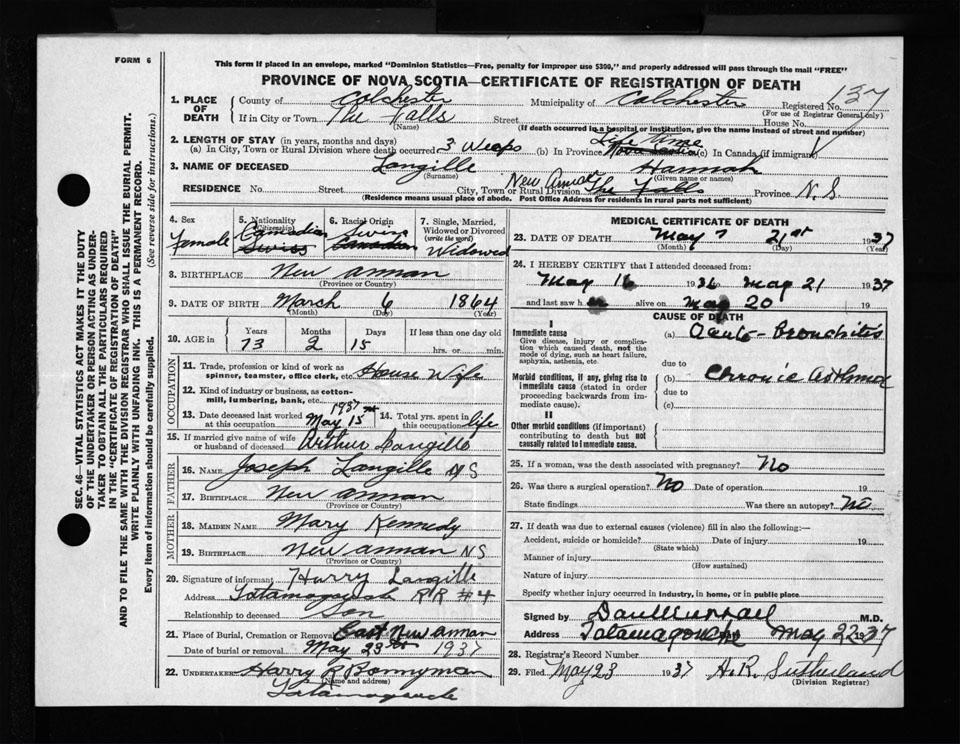 FORM 6
This form if placed in an envelope, marked "Dominion Statistics—Free, penalty for improper use $300," and properly addressed will pass through the mail "FREE"
PROVINCE OF NOVA SCOTIA—CERTIFICATE OF REGISTRATION OF DEATH
1. PLACE OF DEATH County of Colchester Municipality of Colchester Registered No. 137
(For use of Registrar General only)
If in City or Town The Falls Street House No.
(Name) (If death occurred in a hospital or institution, give the name instead of street and number)
2. LENGTH OF STAY (in years, months and days) Life time
(a) In City, Town or Rural Division where death occurred 3 Weeks (b) In Province Nova Scotia (c) In Canada (if immigrant)
3. NAME OF DECEASED Langille Hannah
(Surname) (Given name or names)
RESIDENCE No. Street City, Town or Rural Division New Annan The Falls Province N.S.
(Residence means usual place of abode. Post Office Address for residents in rural parts not sufficient)
4. Sex Female
5. Nationality (Citizenship) Canadian Swiss
6. Racial Origin Swiss Canadian
7. Single, Married, Widowed or Divorced (write the word) Widowed
8. BIRTHPLACE New Annan
(Province or Country)
9. DATE OF BIRTH March 6 1864
(Month) (Day) (Year)
10. AGE in Years 73 Months 2 Days 15 If less than one day old hrs. or min.
OCCUPATION
11. Trade, profession or kind of work as spinner, teamster, office clerk, etc. House Wife
12. Kind of industry or business, as cotton-mill, lumbering, bank, etc.
13. Date deceased last worked at this occupation May 15 1937
14. Total yrs. spent in this occupation life
15. If married give name of wife or husband of deceased Arthur Langille
FATHER
16. NAME Joseph Langille NS
17. BIRTHPLACE New Annan
(Province or Country)
MOTHER
18. MAIDEN NAME Mary Kennedy
19. BIRTHPLACE New Annan NS
(Province or Country)
20. Signature of informant Harry Langille
Address Tatamagouche RR #4
Relationship to deceased Son
21. Place of Burial, Cremation or Removal East New Annan
Date of burial or removal May 23 1937
22. UNDERTAKER Harry R Bonnyman
(Name and address)
Tatamagouche
MEDICAL CERTIFICATE OF DEATH
23. DATE OF DEATH May 21st 1937
(Month) (Day) (Year)
24. I HEREBY CERTIFY that I attended deceased from:
May 16 1936 to May 21 1937
and last saw her alive on May 20 19
CAUSE OF DEATH
I
Immediate cause
Give disease, injury or complication which caused death, not the mode of dying, such as heart failure, asphyxia, asthenia, etc.
(a) Acute Bronchitis
due to
Morbid conditions, if any, giving rise to immediate cause (stated in order proceeding backwards from immediate cause).
(b) Chronic asthma
due to
(c)
II
Other morbid conditions (if important) contributing to death but not causally related to immediate cause.
25. If a woman, was the death associated with pregnancy? No
26. Was there a surgical operation? No Date of operation 19
State findings Was there an autopsy? No
27. If death was due to external causes (violence) fill in also the following:—
Accident, suicide or homicide? Date of injury 19
(State which)
Manner of injury
(How sustained)
Nature of injury
Specify whether injury occurred in industry, in home, or in public place
Signed by M.D.
Address Tatamagouche May 22 1937
28. Registrar's Record Number
29. Filed May 23 1937 H.R. Sutherland
(Division Registrar)
SEC. 46—VITAL STATISTICS ACT MAKES IT THE DUTY
OF THE UNDERTAKER OR PERSON ACTING AS UNDER-
TAKER TO OBTAIN ALL THE PARTICULARS REQUIRED
IN THE "CERTIFICATE OF REGISTRATION OF DEATH"
AND TO FILE THE SAME WITH THE DIVISION REGISTRAR WHO SHALL ISSUE THE BURIAL PERMIT.
WRITE PLAINLY WITH UNFADING INK. THIS IS A PERMANENT RECORD.
Every item of information should be carefully supplied. (See reverse side for instructions.)